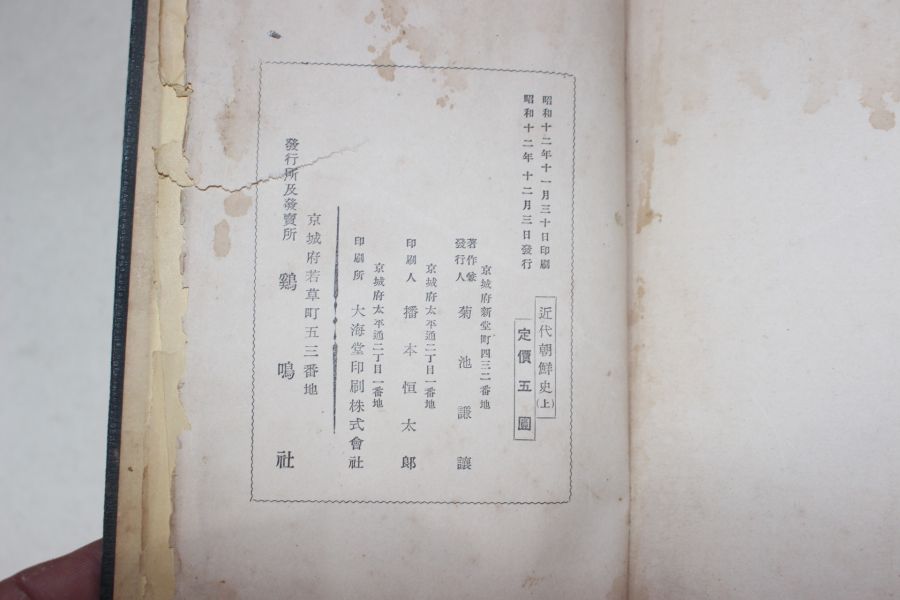 昭和十二年十一月三十日印刷
昭和十二年十二月三日發行
近代朝鮮史(上)
定價五圓
京城府新堂町四三二番地
著作兼
發行人 菊池謙讓
京城府太平通二丁目一番地
印刷人 播本恒太郎
京城府太平通二丁目一番地
印刷所 大海堂印刷株式會社
京城府若草町五三番地
發行所及發賣所 鷄鳴社